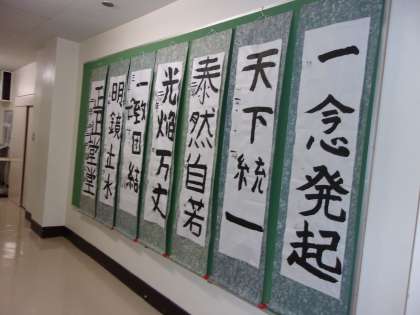 一念発起
天下統一
泰然自若
光焔万丈
一致団結
明鏡止水
正正堂堂